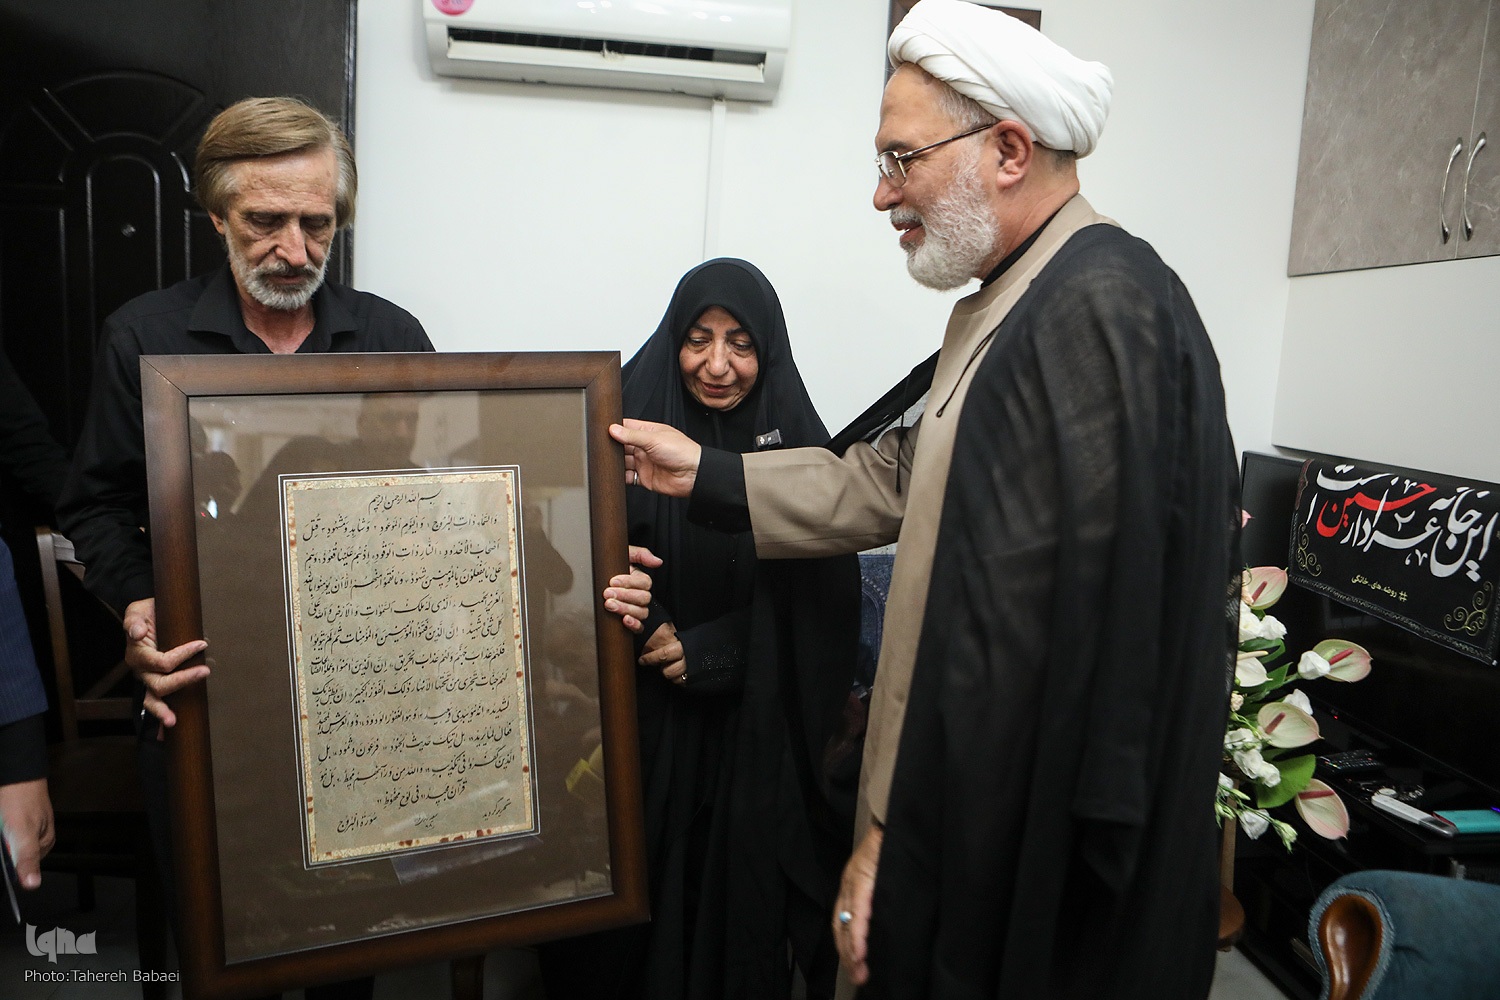 بسم الله الرحمن الرحیم
والسماء ذات البروج، والیوم الموعود، وشاهد ومشهود، قتل
اصحاب الاخدود، النار ذات الوقود، اذهم علیها قعود، وهم
علی ما یفعلون بالمؤمنین شهود، وما نقموا منهم الا ان یؤمنوا بالله
العزیز الحمید، الذی له ملک السموات والارض والله علی
کل شئ شهید، ان الذین فتنوا المؤمنین والمؤمنات ثم لم یتوبوا
فلهم عذاب جهنم ولهم عذاب الحریق، ان الذین امنوا وعملوا الصالحات
لهم جنات تجری من تحتها الانهار ذلک الفوز الکبیر، ان بطش ربک
لشدید، انه هو یبدئ ویعید، وهو الغفور الودود، ذوالعرش المجید
فعال لما یرید، هل اتیک حدیث الجنود، فرعون وثمود، بل
الذین کفروا فی تکذیب، والله من ورآئهم محیط، بل هو
قرآن مجید، فی لوح محفوظ
سورة البروج
تحریر گردید
این خانه عزادار حسین است
# روضه_های_خانگی
Iqna
Photo:Tahereh Babaei